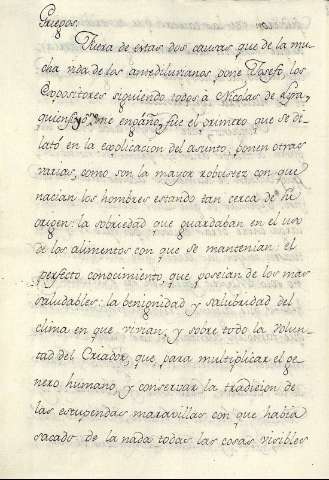 Griegos.
Fuera de estas dos causas que de la mu
cha vida de los antediluvianos pone Josefo, los
Expositores siguiendo todos a Nicolas de Lyra,
quien, si no me engaño, fue el primero que se di
lató en la explicacion del asunto; ponen otras
varias, como son la mayor robustez con que
nacian los hombres estando tan cerca de su
origen: la sobriedad que guardaban en el uso
de los alimentos con que se mantenian: el
perfecto conocimiento, que poseian de los mas
saludables: la benignidad y salubridad del
clima en que vivian, y sobre todo la volun
tad del Criador, que para multiplicar el ge
nero humano, y conservar la tradicion de
las estupendas maravillas con que habia
sacado de la nada todas las cosas visibles